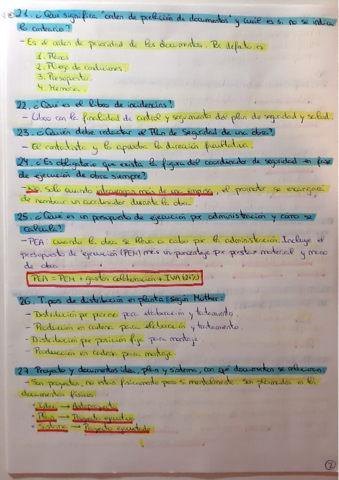 21. ¿Qué significa "orden de prelación de documentos" y cual es si no se indica
lo contrario?
- Es el orden de prioridad de los documentos. Por defecto es
1. Planos
2. Pliego de condiciones.
3. Presupuesto.
4. Memoria.
22. ¿Qué es el libro de incidencias?
- Libro con la finalidad de control y seguimiento del plan de seguridad y salud.
23. ¿Quién debe redactar el Plan de Seguridad de una obra?
- El contratista y lo aprueba la dirección facultativa.
24. ¿Es obligatorio que exista la figura del coordinador de seguridad en fase
de ejecución de obra siempre?
- No. Solo cuando intervengan más de una empresa, el promotor se encargara
de nombrar un coordinador durante la obra.
25. ¿Qué es un presupuesto de ejecución por administración y como se
calcula?
- PEA: cuando la obra se lleva a cabo por la administración. Incluye el
presupuesto de ejecución (PEM) más un porcentaje por prestar material y mano
de obra.
PEA = PEM + gastos colaboración + IVA (21%)
26. Tipos de distribución en planta según Muther:
- Distribución por proceso para elaboración y tratamiento.
- Producción en cadena para elaboración y tratamiento.
- Distribución por posición fija para montaje
- Producción en cadena para montaje
27. Proyecto y documentos idea, plan y sistema, con qué documentos se relacionan
- Son proyectos, no están físicamente pero si mentalmente. Son plasmados en los
documentos físicos:
- Idea → Anteproyecto
- Plan → Proyecto ejecutivo
- Sistema → Proyecto ejecutado